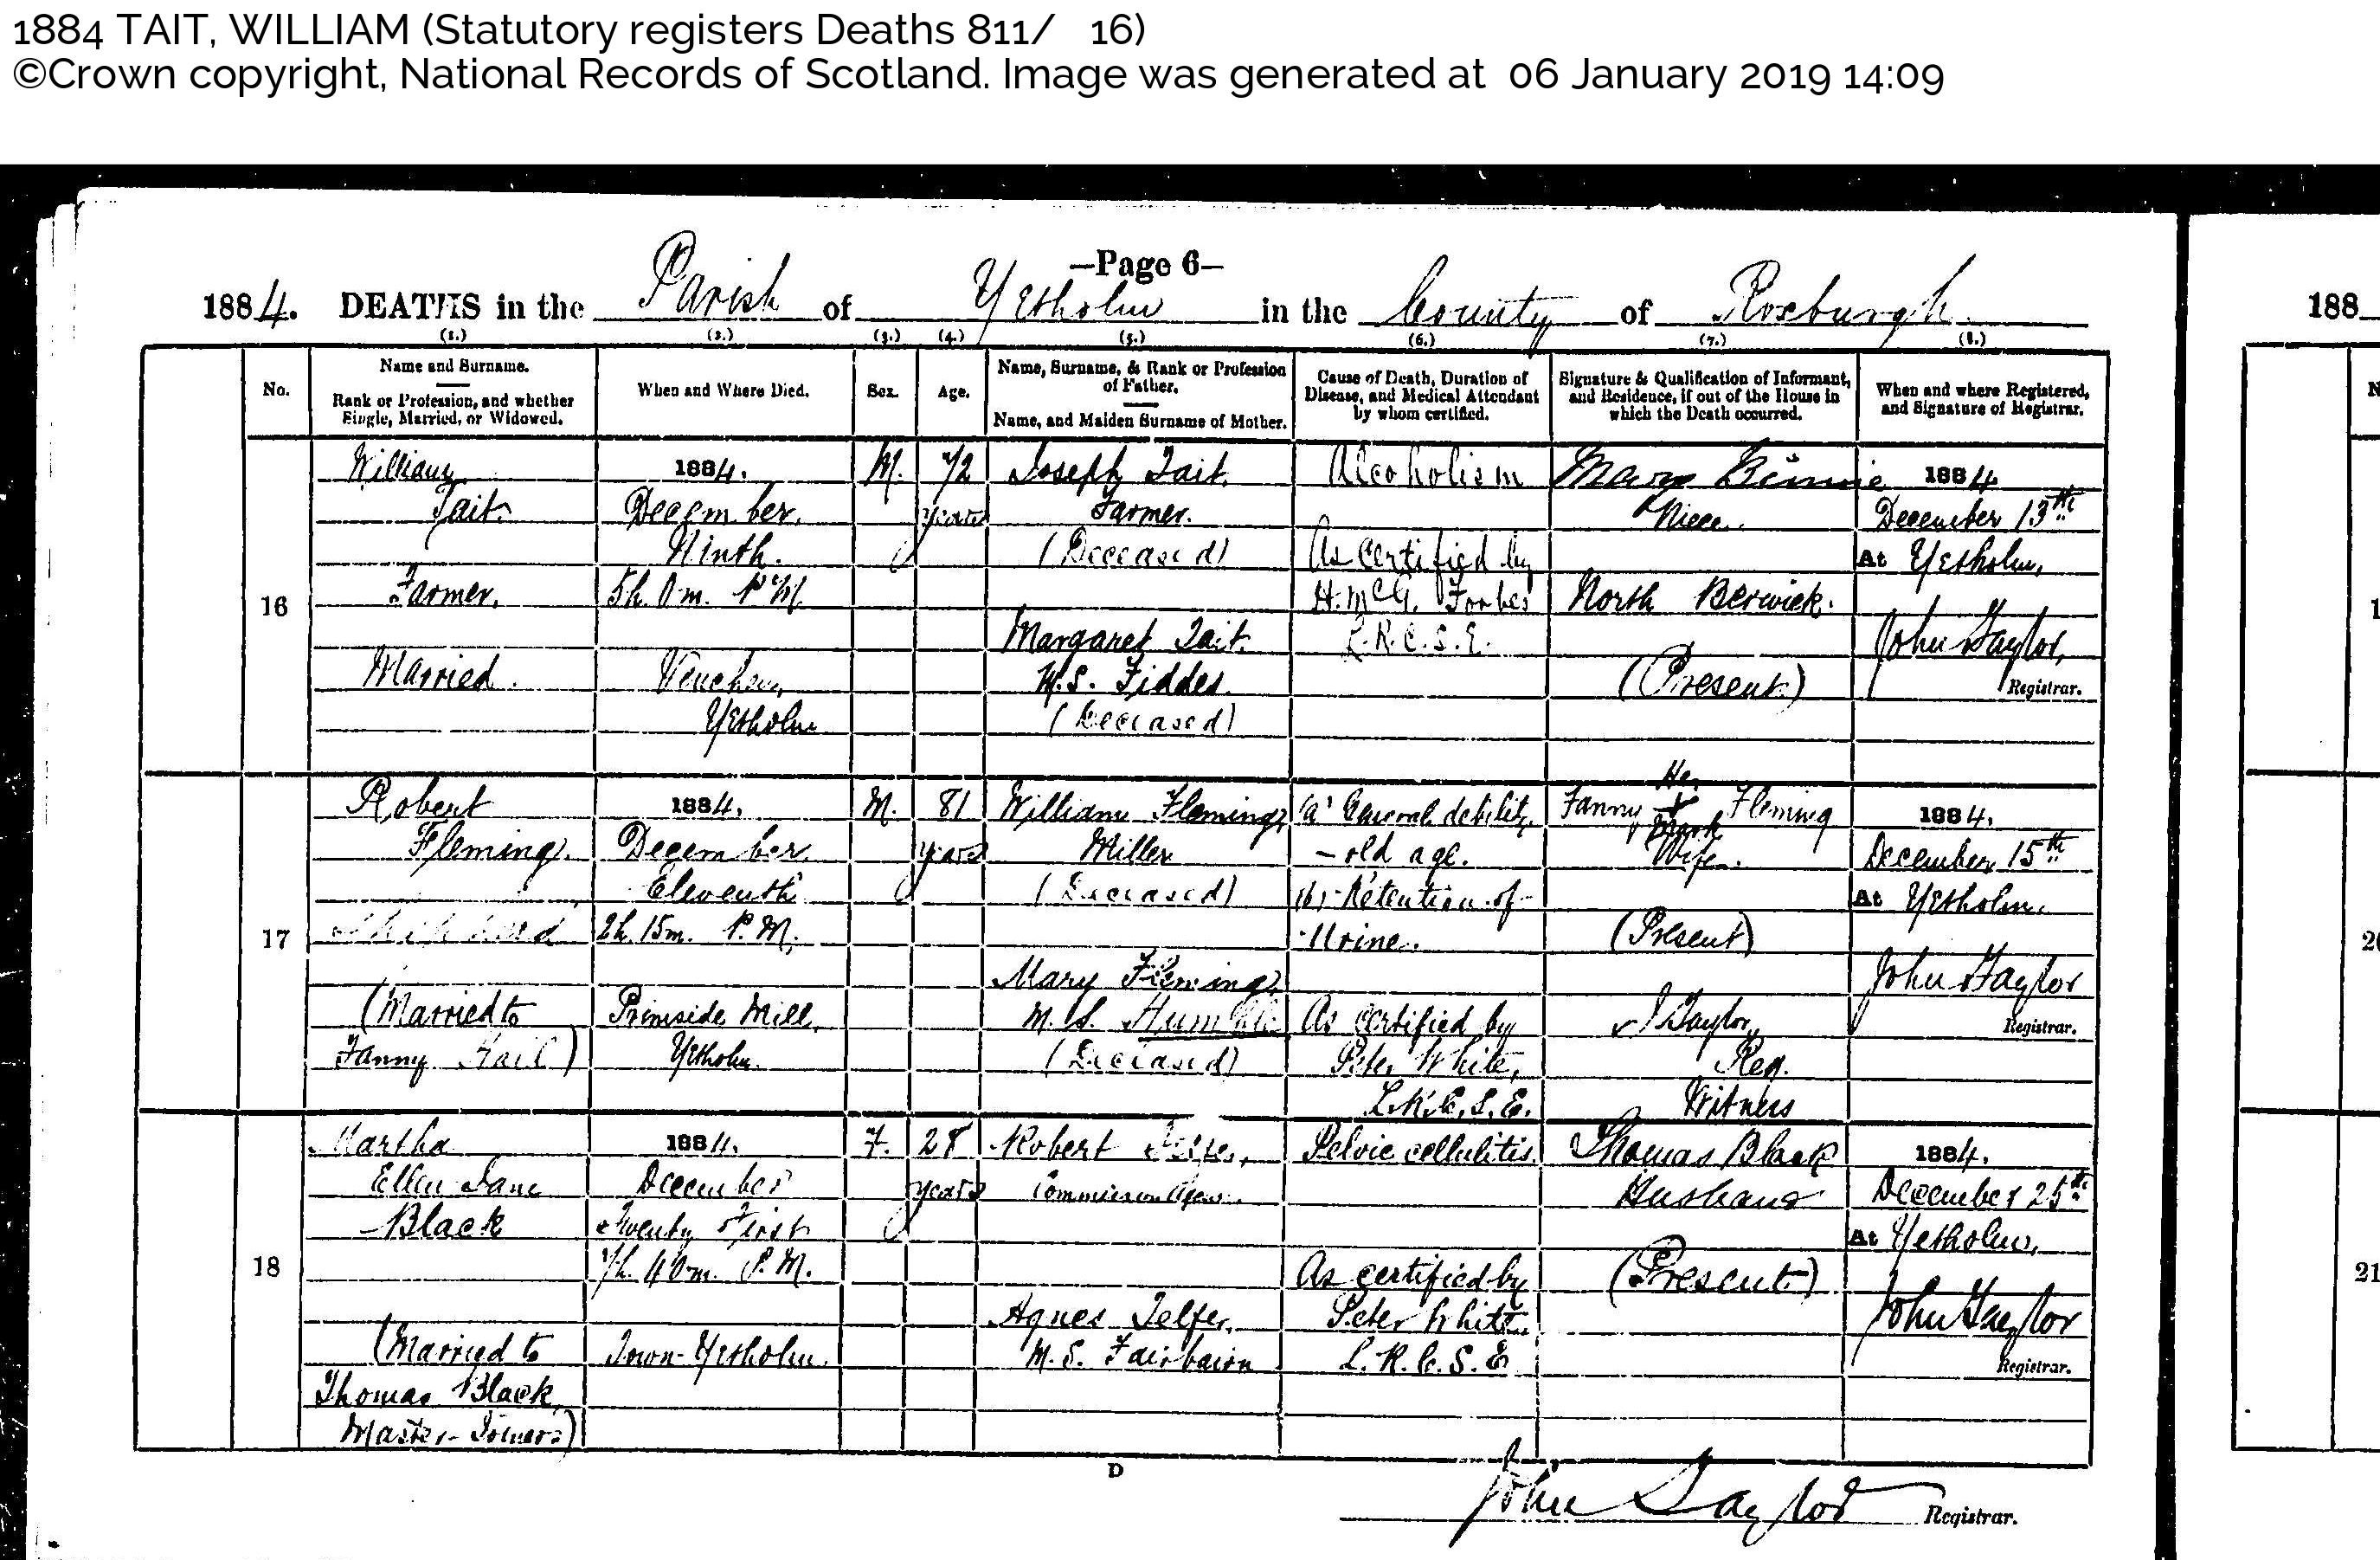 1884 TAIT, WILLIAM (Statutory registers Deaths 811/ 16)
©Crown copyright, National Records of Scotland. Image was generated at 06 January 2019 14:09
—Page 6—
1884. DEATHS in the Parish of Yetholm in the County of Roxburgh
(1.) (2.) (3.) (4.) (5.) (6.) (7.) (8.)
No.
Name and Surname.
Rank or Profession, and whether
Single, Married, or Widowed.
When and Where Died.
Sex.
Age.
Name, Surname, & Rank or Profession
of Father.
Name, and Maiden Surname of Mother.
Cause of Death, Duration of
Disease, and Medical Attendant
by whom certified.
Signature & Qualification of Informant,
and Residence, if out of the House in
which the Death occurred.
When and where Registered,
and Signature of Registrar.
16
William
Tait.
Farmer.
Married.
1884.
December.
Ninth.
5h. 0m. P.M.
Venchen,
Yetholm
M.
72
years
Joseph Tait.
Farmer.
(Deceased)
Margaret Tait.
M.S. Fiddes.
(Deceased)
Alcoholism
As Certified by
H. McG. Forbes
L.R.C.S.E.
Mary Binnie
Niece.
North Berwick.
(Present)
1884
December 13th
At Yetholm,
John Taylor,
Registrar.
17
Robert
Fleming.
(Married to
Fanny)
1884.
December
Eleventh
2h. 15m. P.M.
Primside Mill,
Yetholm.
M.
81
years
William Fleming,
Miller
(Deceased)
Mary Fleming,
M.S.
(Deceased)
(a) General debility
- old age.
(b) - Retention of
Urine.
As certified by
Peter White,
L.R.C.S.E.
Her
Fanny x Fleming
Mark
Wife.
(Present)
J Taylor,
Reg.
Witness
1884.
December 15th
At Yetholm.
John Taylor
Registrar.
18
Martha
Ellen Jane
Black
(Married to
Thomas Black,
Master-Joiner)
1884.
December
Twenty First
7h. 40m. P.M.
Town-Yetholm.
F.
28
years
Robert Telfer,
Commission Agent.
Agnes Telfer,
M.S. Fairbairn
Pelvic cellulitis
As certified by
Peter White
L.R.C.S.E
Thomas Black
Husband
(Present)
1884.
December 25th
At Yetholm,
John Taylor
Registrar.
D
John Taylor Registrar.
188
20
21